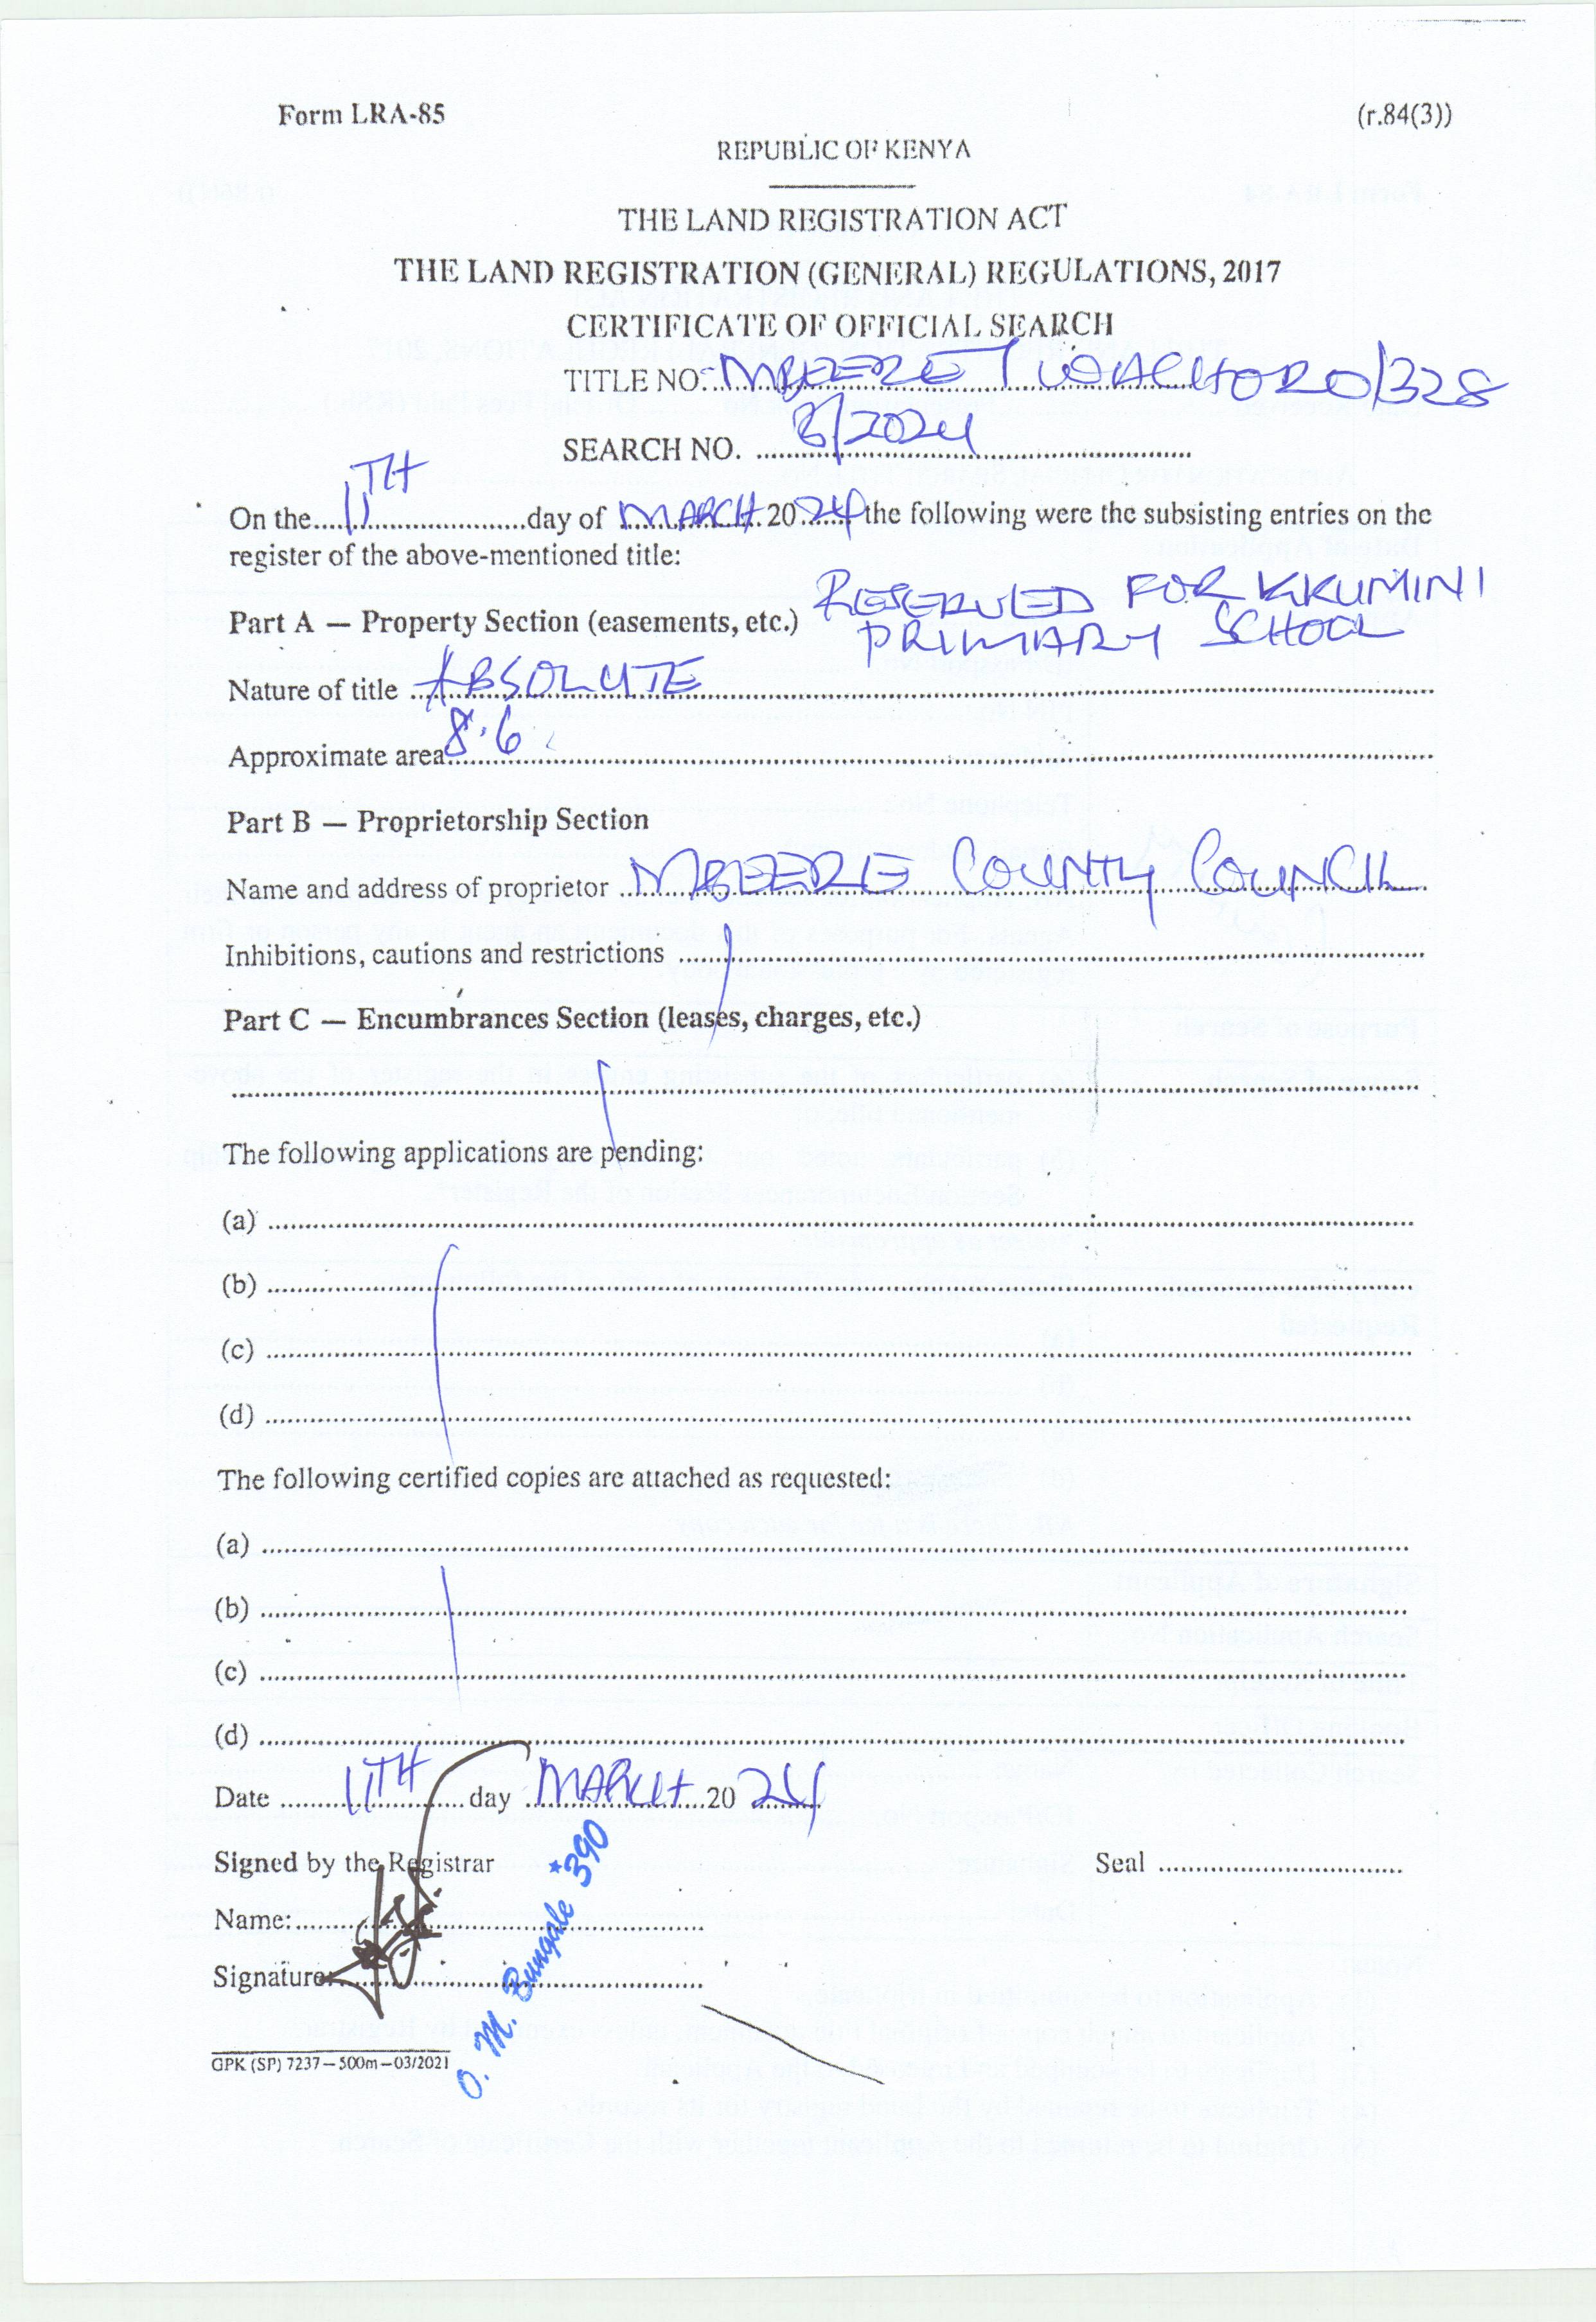 Form LRA-85 (r.84(3))
REPUBLIC OF KENYA
THE LAND REGISTRATION ACT
THE LAND REGISTRATION (GENERAL) REGULATIONS, 2017
CERTIFICATE OF OFFICIAL SEARCH
TITLE NO: MBEERE / WACHORO/328
SEARCH NO. 8/2024
On the 11TH day of MARCH 2024 the following were the subsisting entries on the
register of the above-mentioned title:
Part A — Property Section (easements, etc.) RESERVED FOR KKUMINI
PRIMARY SCHOOL
Nature of title ABSOLUTE
Approximate area 8.6
Part B — Proprietorship Section
Name and address of proprietor MBEERE COUNTY COUNCIL
Inhibitions, cautions and restrictions
Part C — Encumbrances Section (leases, charges, etc.)
The following applications are pending:
(a)
(b)
(c)
(d)
The following certified copies are attached as requested:
(a)
(b)
(c)
(d)
Date 11TH day MARCH 2024
Signed by the Registrar Seal
Name:
Signature:
O. M. Bungale *390
GPK (SP) 7237—500m—03/2021